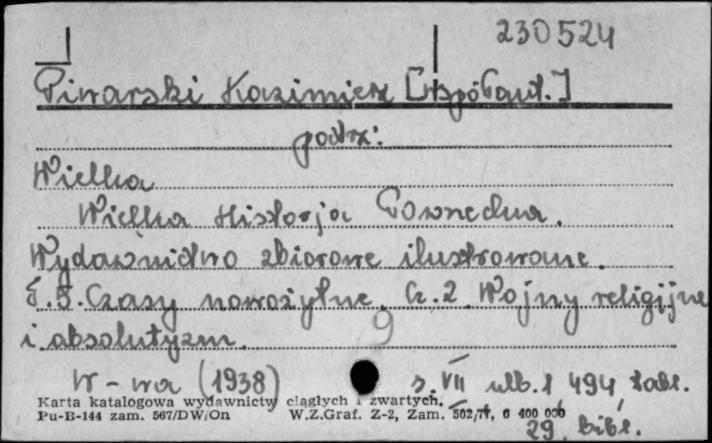 230524
Piwarski Kazimierz [współaut.]
patrz:
Wielka
Wielka Historja Powszechna.
Wydawnictwo zbiorowe ilustrowane.
T.5. Czasy nowożytne. Cz.2. Wojny religijne
i absolutyzm.
9
W-wa (1938) s. VII ulb.1 494, tabl.
Karta katalogowa wydawnictw ciągłych i zwartych.
Pu-B-144 zam. 567/DW/On W.Z.Graf. Z-2, Zam. 502/77, 6 400 000
29, bibl.